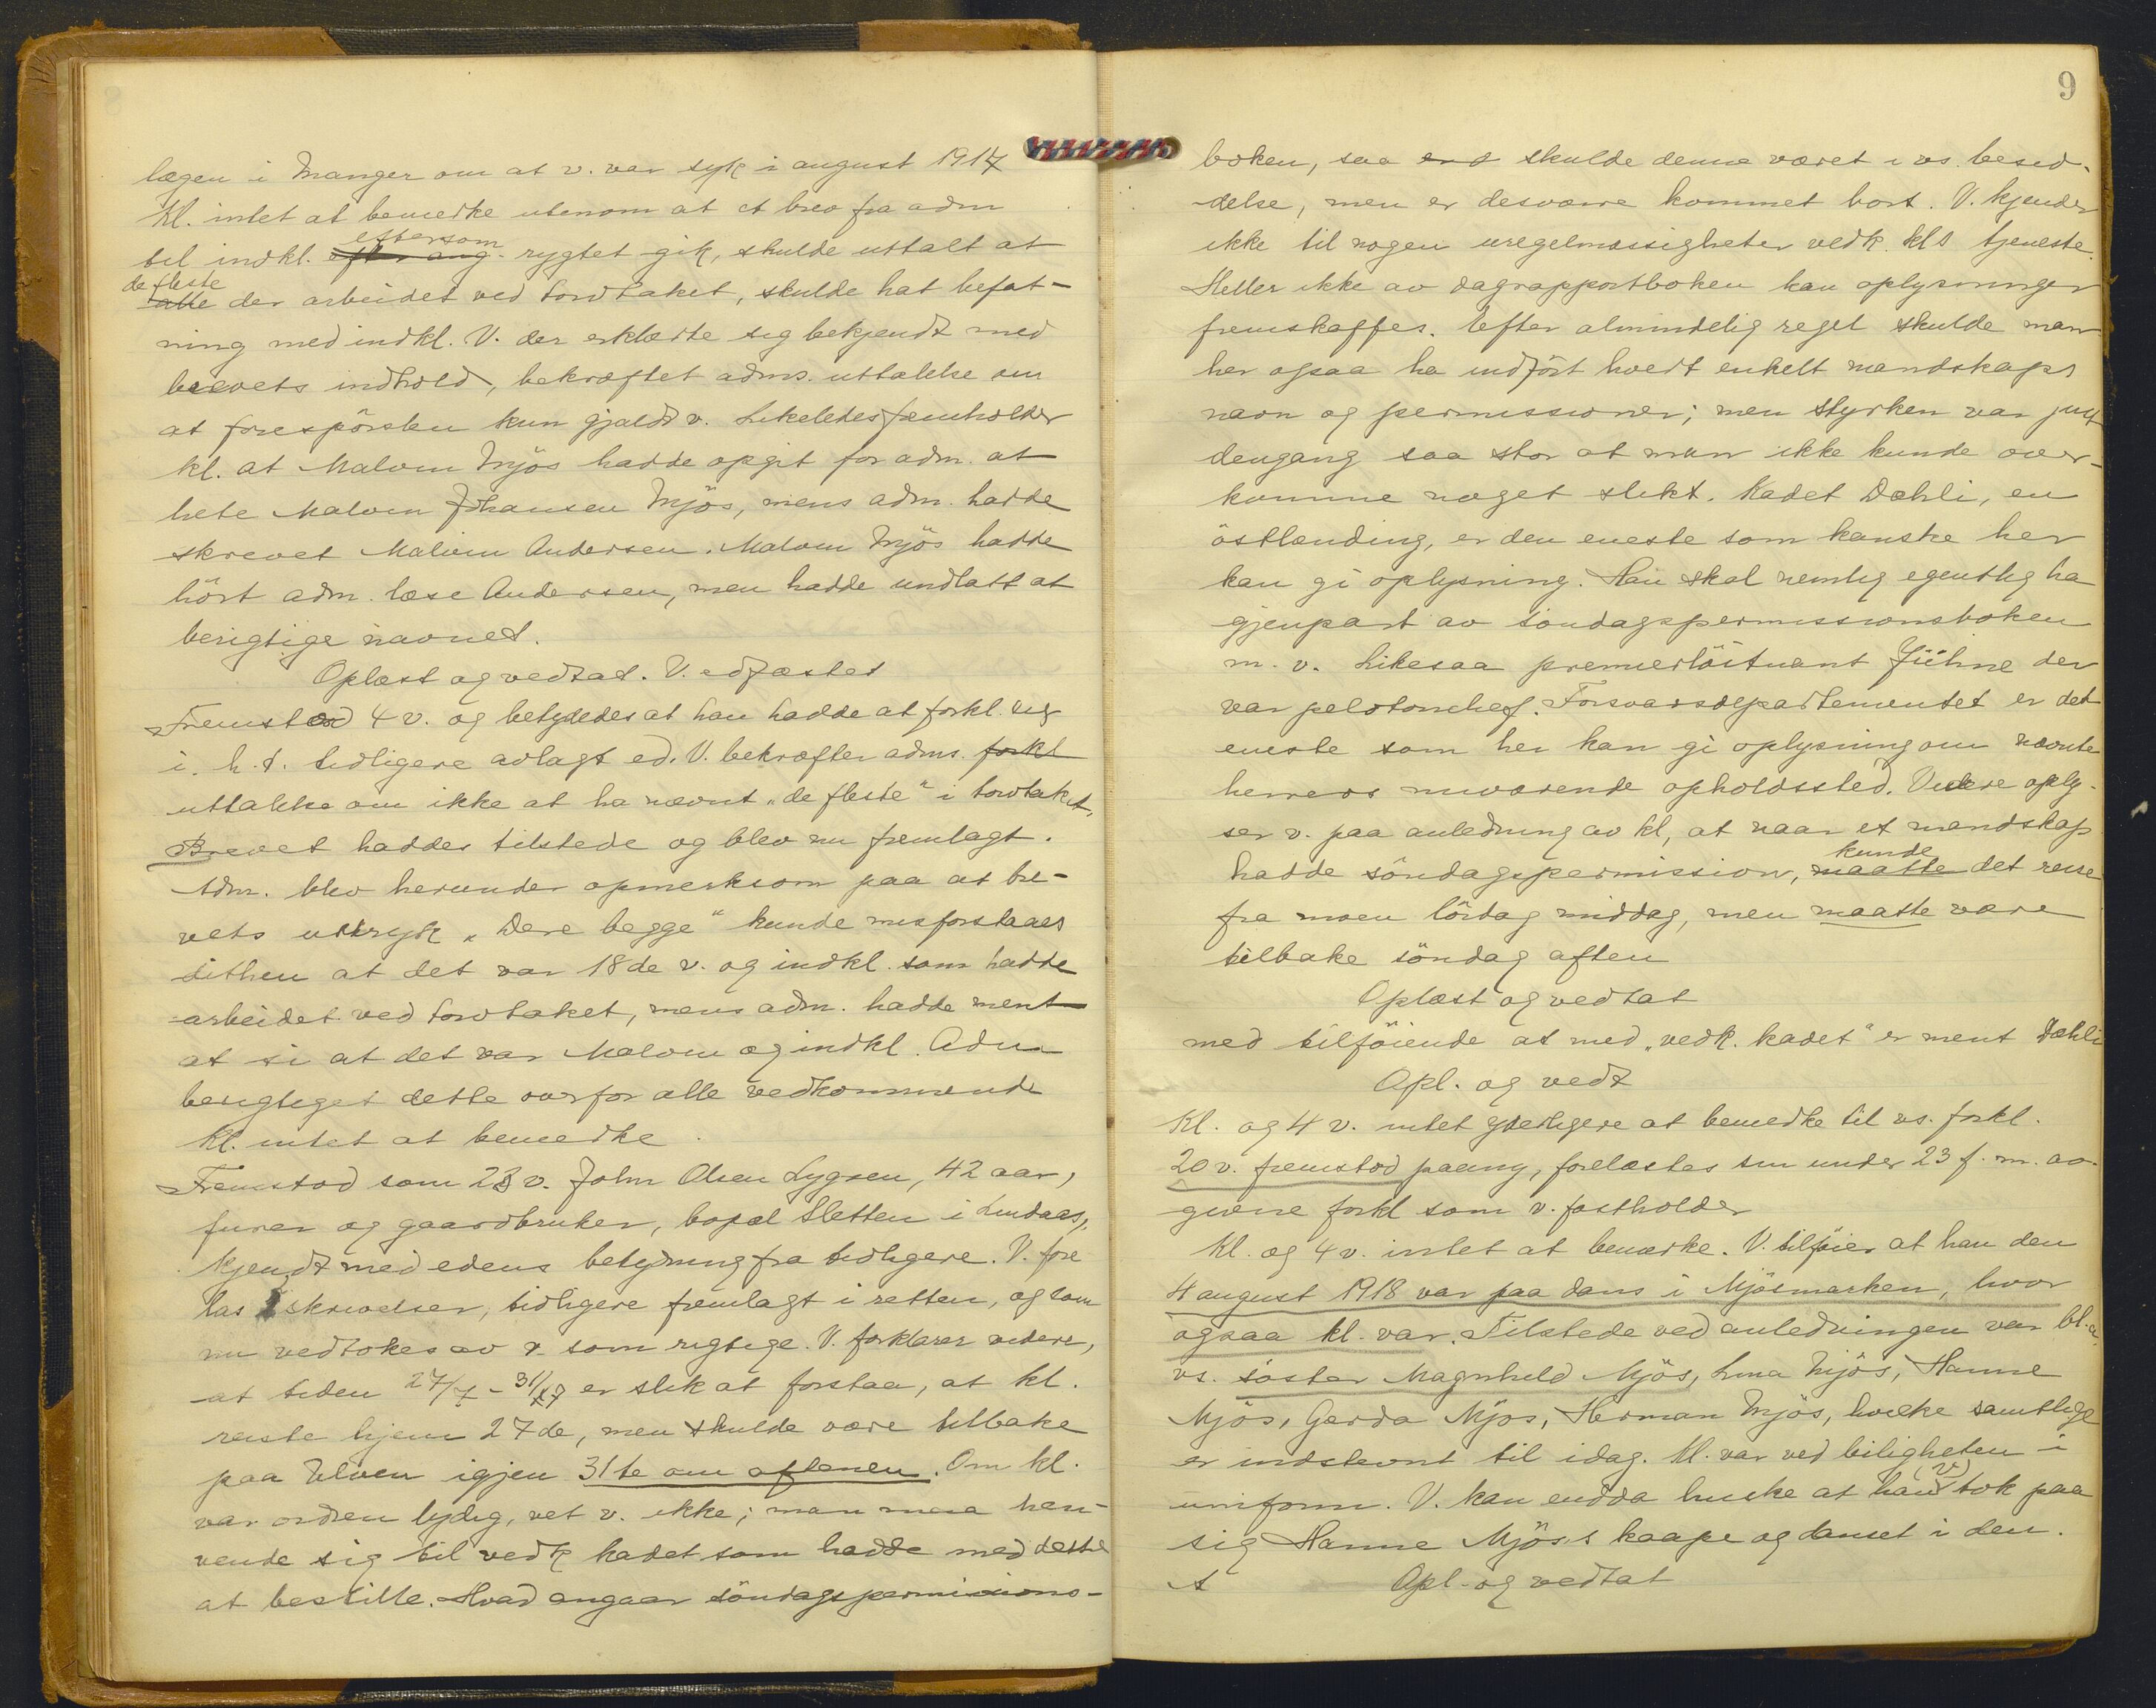 lægen i Manger om at v. var syk i august 1917
Kl. intet at bemerke utenom at et brev fra adm
til indkl. efter ang. eftersom rygtet gik, skulde uttalt at
alle de fleste der arbeidet ved torvtaket, skulde hat befat-
ning med indkl. V. der erklærte sig bekjendt med
brevets indhold, bekræftet adms. uttalelse om
at forespörslen kun gjaldt v. Likeledes fremholder
kl. at Malvin Mjös hadde opgit for adm. at
hete Malvin Johansen Mjös, mens adm. hadde
skrevet Malvin Andersen. Malvin Mjös hadde
hört adm. læse Andersen, men hadde undlatt at
berigtige navnet.
Oplæst og vedtat. V. edfæstet
Fremstod 4 v. og betydedes at han hadde at forkl. sig
i. h. t. tidligere avlagt ed. V. bekræfter adms. forkl
uttalelse om ikke at ha nævnt "de fleste" i torvtaket,
Brevet haddes tilstede og blev nu fremlagt.
Adm. blev herunder opmerksom paa at bre-
vets uttryk "Dere begge" kunde misforstaaes
dithen at det var 18de v. og indkl. som hadde
arbeidet ved torvtaket, mens adm. hadde ment
at si at det var Malvin og indkl. Adm
berigtiget dette overfor alle vedkommende
Kl. intet at bemerke.
Fremstod som 23 v. John Olsen Lygren, 42 aar,
furer og gaardbruker, bopæl Sletten i Lindaas,
Kjendt med edens betydning fra tidligere. V. fore
las skrivelser, tidligere fremlagt i retten, og som
nu vedtokes av v. som rigtige. V. forklarer videre,
at tiden 27/7 - 31/7 er slik at forstaa, at kl.
reiste hjem 27de, men skulde være tilbake
paa Ulven igjen 31te om aftenen. Om kl.
var ordren lydig, vet v. ikke; man maa hen-
vende sig til vedk kadet som hadde med dette
at bestille. Hvad angaar söndagspermissions-
9
boken, saa skulde denne været i vs. besid-
delse, men er desværre kommet bort. V. kjender
ikke til nogen uregelmæssigheter vedk. kls tjeneste.
Heller ikke av dagrapportboken kan oplysninger
fremskaffes. Efter almindelig regel skulde man
her ogsaa ha indfört hvert enkelt mandskaps
navn og permissioner; men styrken var just
dengang saa stor at man ikke kunde over-
komme noget slikt. Kadet Dæhli, en
östlænding, er den eneste som kanske her
kan gi oplysning. Han skal nemlig egentlig ha
gjenpart av söndagspermissionsboken
m. v. Likesaa premierlöitnant Jühne der
var pelotonchef. Forsvarsdepartementet er det
eneste som her kan gi oplysning om nævnte
herrers nuværende opholdssted. Videre oply-
ser v. paa anledning av kl, at naar et mandskap
hadde söndagspermission, maatte kunde det reise
fra moen lördag middag, men maatte være
tilbake söndag aften
Oplæst og vedtat
med tilföiende at med "vedk. kadet" er ment Dæhli
Opl. og vedt
Kl. og 4 v. intet yderligere at bemerke til vs. forkl.
20 v. fremstod paany, forelæstes sin under 23 f. m. av-
givne forkl som v. fastholder
Kl. og 4 v. intet at bemærke. V. tilföier at han den
4 august 1918 var paa dans i Mjösmarken, hvor
ogsaa kl. var. Tilstede ved anledningen var bl. a.
vs. söster Magnhild Mjös, Lina Mjös, Hanne
Mjös, Gerda Mjös, Herman Mjös, hvilke samtlige
er indstevnt til idag. Kl. var ved leiligheten i
uniform. V. kan endda huske at han (v) tok paa
sig Hanne Mjös's kaape og danset i den.
Opl. og vedtat